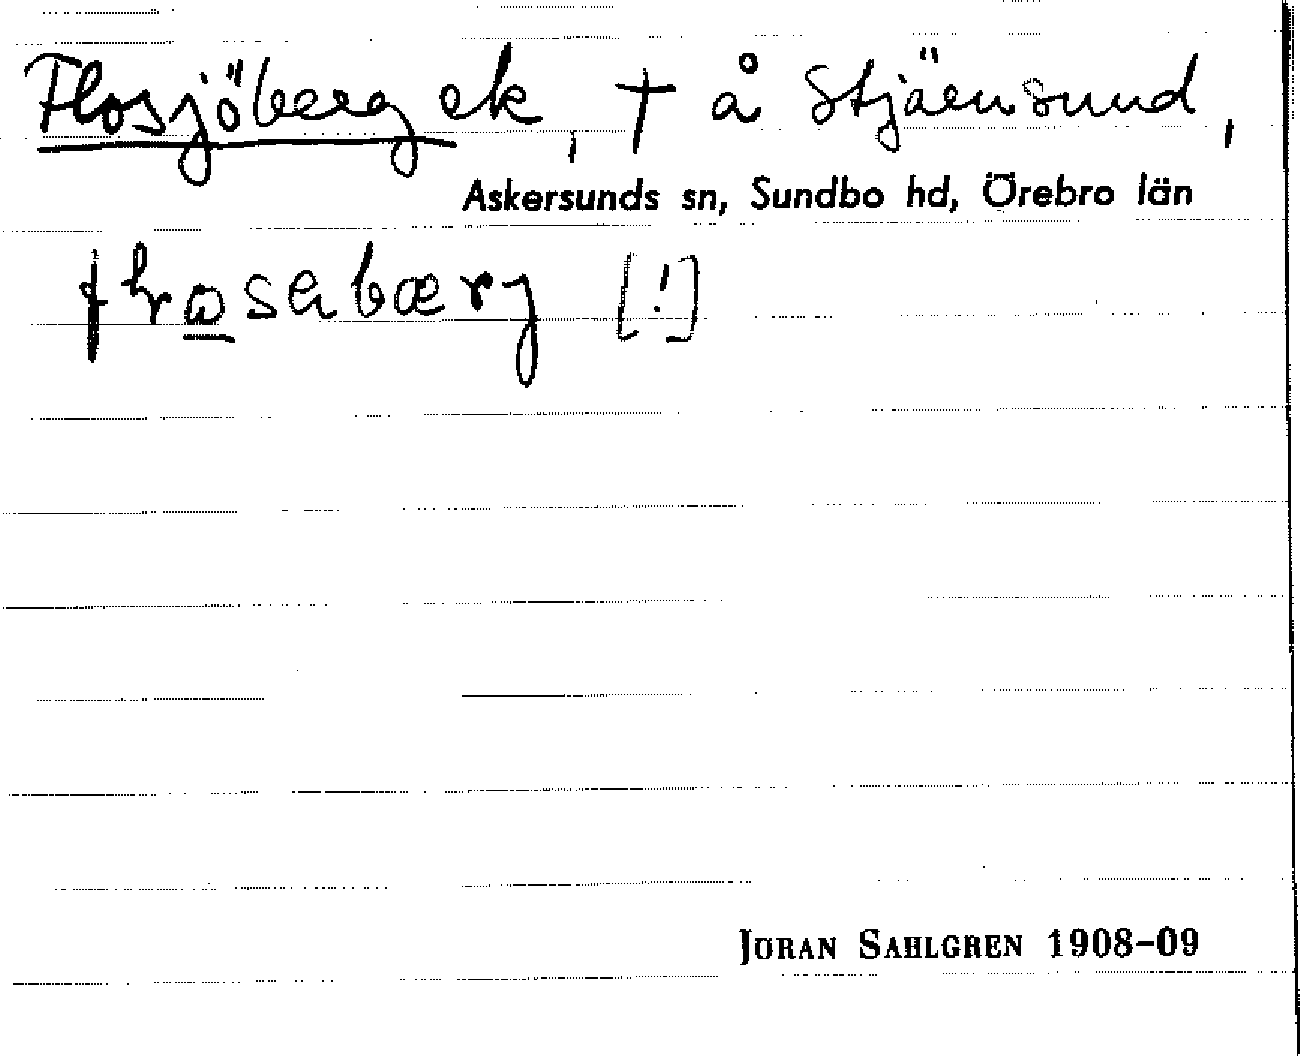 Flosjöberg ek, † å Stjärnsund,
Askersunds sn, Sundbo hd, Örebro län
[!]
JÖRAN SAHLGREN 1908–09